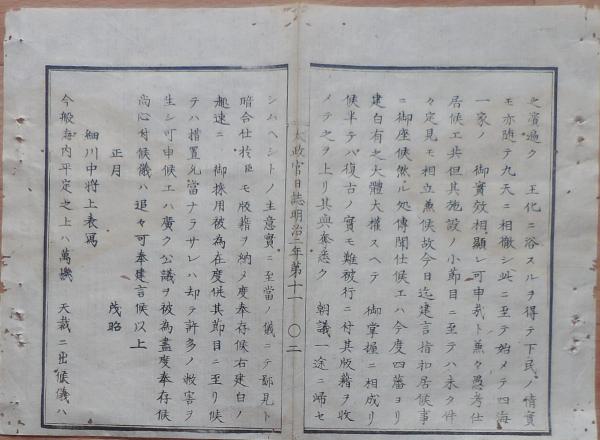 之濱遍ク　王化ニ浴スルヲ得テ下民ノ情實
モ亦随テ九天ニ相徹シ此ニ至テ始メテ四海
一家ノ　御實效相顕レ可申哉ト兼々愚考仕
居候エ共但其施設ノ小節目ニ至テハ未タ件
々定見モ相立兼候故今日迄建言指和居候事
ニ御座候然ル処傳聞仕候エハ今度四藩ヨリ
建白有之大體大權スヘテ　御掌握ニ相成リ
候半テバ復古ノ實モ難被行ニ付其版籍ヲ收
メテ之ヲ上リ其與奪悉ク　朝議一途ニ帰セ
太政官日誌明治二年第十一　〇二
シムヘシトノ主意實ニ至當ノ儀ニテ鄙見ト
暗合仕於臣モ版籍ヲ納メ度奉存候右建白ノ
趣速ニ　御採用被為在度併其節目ニ至リ候
テハ措置允當ナラサレハ却テ許多ノ弊害ヲ
生シ可申候エハ廣ク公議ヲ被為盡度奉存候
尚心付候儀ハ追々可奉建言候以上
正月　茂昭
細川中将上表寫
今般海内平定之上ハ萬機　天裁ニ出候儀ハ